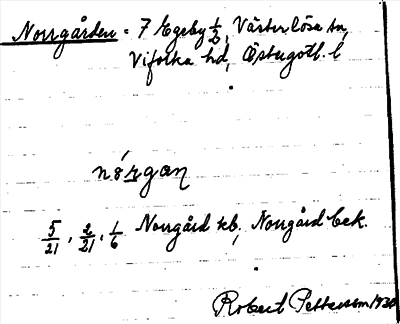 Norrgården = 7 Egeby 1/2, Västerlösa sn,
Vifolka hd, Östergötl. l
nórgan
5/21, 2/21, 1/6 Norrgård kb, Norrgård bek.
Robert Pettersson 1930